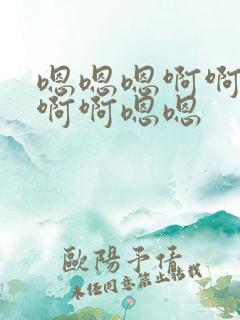 嗯嗯嗯啊啊
啊啊嗯嗯
歐陽予倩
未经同意禁止转载